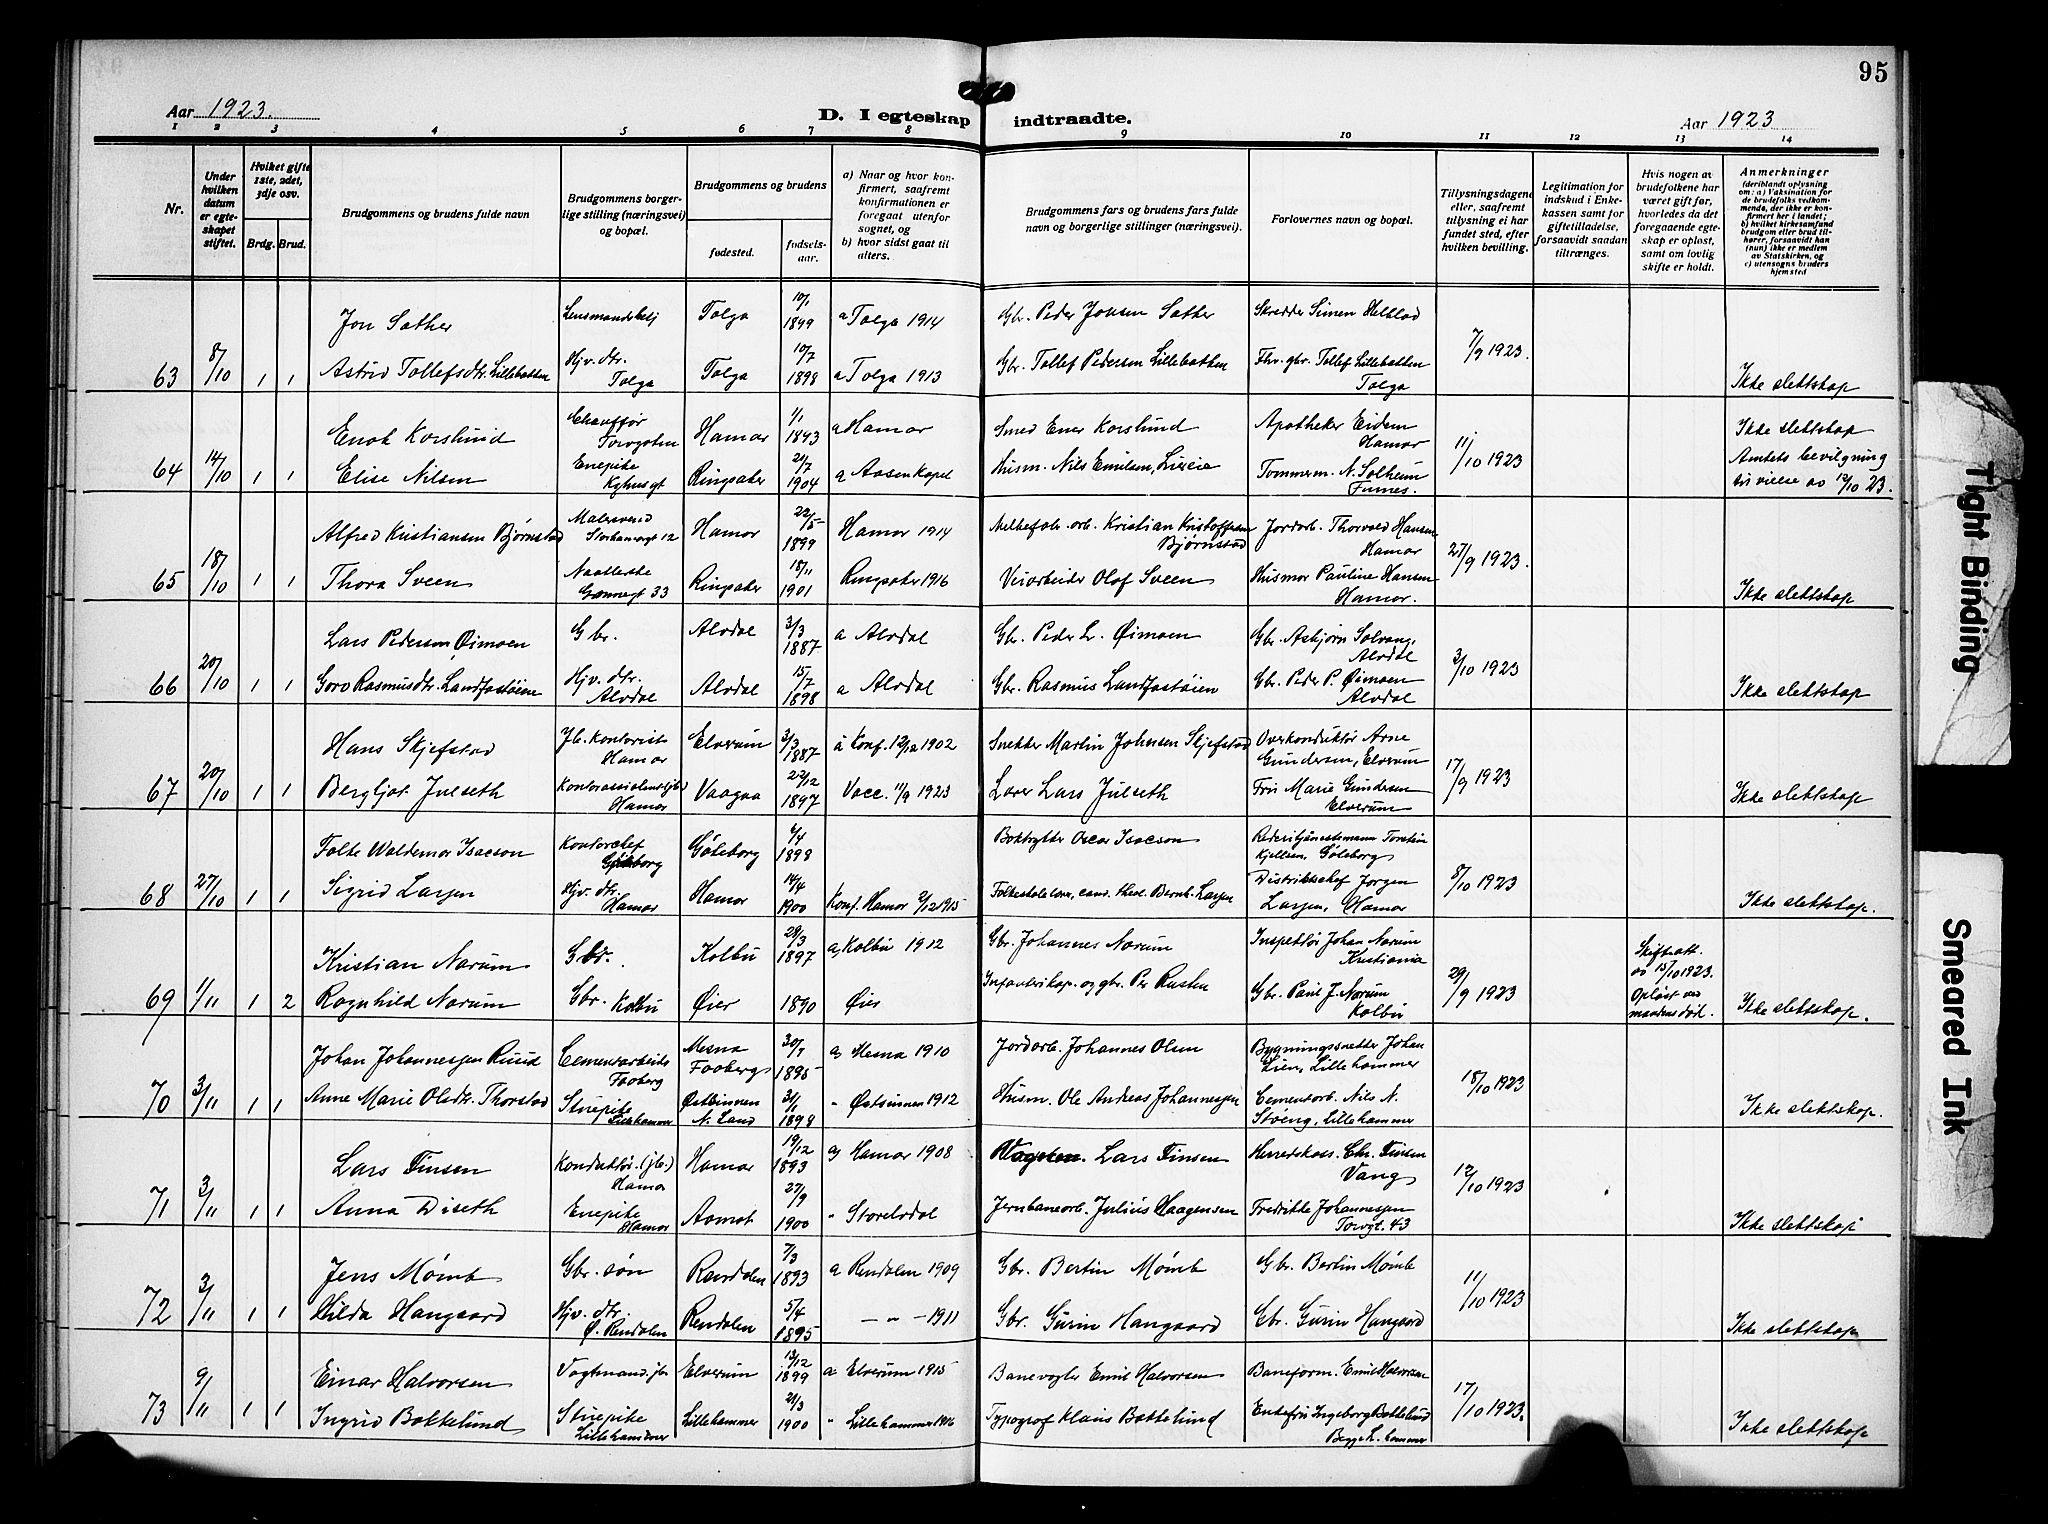 95
Aar 1923. D. I egteskap indtraadte. Aar 1923
1 2 3 4 5 6 7 8 9 10 11 12 13 14
Nr.
Under hvilken datum er egteskapet stiftet.
Hvilket gifte 1ste, 2det, 3dje osv.
Brdg. Brud.
Brudgommens og brudens fulde navn
Brudgommens borgerlige stilling (næringsvei) og bopæl.
Brudgommens og brudens
fødested.
fødselsaar.
a) Naar og hvor konfirmert, saafremt konfirmationen er foregaat utenfor sognet, og
b) hvor sidst gaat til alters.
Brudgommens fars og brudens fars fulde navn og borgerlige stillinger (næringsvei).
Forlovernes navn og bopæl.
Tillysningsdagene eller, saafremt tillysning ei har fundet sted, efter hvilken bevilling.
Legitimation for indskud i Enkekassen samt for giftetilladelse, forsaavidt saadan tiltrænges.
Hvis nogen av brudefolkene har været gift før, hvorledes da det foregaaende egteskap er opløst, samt om lovlig skifte er holdt.
Anmerkninger
(deriblandt oplysning om: a) Vaksination for de brudefolks vedkommende, der ikke er konfirmert her i landet; b) hvilket kirkesamfund brudgom eller brud tilhører, forsaavidt han (hun) ikke er medlem av Statskirken, og c) utensogns bruders hjemsted
Jon Sæther Lensmandsbetj Tolga 10/1 1899 a Tolga 1914 Gbr. Peder Jonsen Sæther Skrædder Simen Helblad
63 8/10 1 1 Astrid Tollefsdtr. Lillebakken Hjv. dtr. Tolga Tolga 10/7 1898 a Tolga 1913 Gbr. Tollef Pedersen Lillebakken Fhv. gbr. Tollef Lillebakken Tolga 7/9 1923. Ikke slektskap
Enok Korslund Chauffør Torvgaten Hamar 1/1 1893 a Hamar Smed Ener Korslund Apotheker Eidem Hamar Ikke slektskap
64 14/10 1 1 Elise Nilsen Enepike Ringsaker 21/7 1904 a Aasen Kapel Husm. Nils Emilsen, Tømmerm. N. Solheim Furnes. 11/10 1923 Amtets bevilgning til vielse av 12/10 23.
Alfred Kristiansen Bjørnstad Malersvend Storhamargt 12 Hamar 22/5 1899 Hamar 1914 Melkefabr. arb. Kristian Kristoffersen Bjørnstad Jordarb. Thorvald Hansen Hamar
65 18/10 1 1 Thora Sveen Grønnegt 33 Ringsaker 18/11 1901 Ringsaker 1916 Veiarbeider Olaf Sveen Husmor Pauline Hansen Hamar. 27/9 1923. Ikke slektskap
Lars Pedersen Øimoen Gbr. Alvdal 3/3 1887 a Alvdal Gbr. Peder L. Øimoen Gbr. Asbjørn Solvang, Alvdal
66 20/10 1 1 Goro Rasmusdtr. Landfastøien Hjv. dtr. Alvdal Alvdal 15/7 1898 a Alvdal Gbr. Rasmus Landfastøien Gbr. Peder P. Øimoen Alvdal 3/10 1923 Ikke slektskap
Hans Skjefstad Jb. kontorist Hamar Elverum 3/3 1887 a Konf. 12/12 1902 Snekker Martin Johnsen Skjefstad Overkonduktør Arne Gundersen, Elverum
67 20/10 1 1 Bergljot Julseth Kontorassistent (jb) Hamar Vaagaa 22/12 1897 Vacc. 11/9 1923 Lærer Lars Julseth Frk Marie Gundersen Elverum 17/9 1923 Ikke slektskap
Folke Waldemar Isacson Kontorchef Gøteborg Gøteborg 6/4 1898 Boktrykker Oscar Isacson Rederitjenestemann Torstein Kjellsen, Gøteborg
68 27/10 1 1 Sigrid Larsen Hjv. dtr. Hamar Hamar 14/4 1900 Konf. Hamar 2/12 1915 Folkeskolelærer, cand. theol. Bernh. Larsen Distriktschef Jørgen Larsen, Hamar 8/10 1923 Ikke slektskap.
Kristian Narum Gbr. Kolbu 28/3 1897 a, Kolbu 1912 Gbr. Johannes Narum Inspektør Johan Narum Kristiania Skifteatt. av 15/10 1923.
69 1/11 1 2 Ragnhild Narum Gbr. Kolbu Øier 1890 Øier Infanterikap. og gbr. Per Rusten Gbr. Paul J. Narum Kolbu 29/9 1923 Opløst ved mandens død. Ikke slektskap.
Johan Johannessen Ruud Cementarbeider Faaberg Mesna Faaberg 30/7 1895 a, Mesna 1910 Jordarb. Johannes Olsen Bygningssnekker Johan Lien, Lillehammer
70 3/11 1 1 Anne Marie Olsdtr. Thorstad Stuepike Lillehammer Østsinnen N. Land 31/1 1898 " Østsinnen 1912 Husm. Ole Andreas Johannessen Cementarb. Nils N. Støeng, Lillehammer 18/10 1923 Ikke slektskap.
Lars Finsen Konduktør. (jb.) Hamar Hamar 19/12 1893 a, Hamar 1908 Lars Finsen Herredskass. Chr. Finsen Vang
71 3/11 1 1 Anna Diseth Enepike Hamar Aamot 27/9 1900 " Storelvdal Jernbanearb. Julius Haagensen Fredrikke Johannessen Torvgt. 43 12/10 1923 Ikke slektskap
Jens Mømb Gbr. søn Rendalen 7/3 1893 a Rendalen 1909 Gbr. Bertin Mømb Gbr. Bertin Mømb
72 3/11 1 1 Hilda Hangaard Hjv. dtr. Ø. Rendalen Rendalen 5/4 1895 — " — 1911 Gbr. Gurin Hangaard Gbr. Gurin Hangaard 11/10 1923 Ikke slektskap
Einar Halvorsen Vogtmand. jb. Elverum 13/12 1899 a Elverum 1915 Banevogter Emil Halvorsen Baneform. Emil Halvorsen
73 9/11 1 1 Ingrid Bakkelund Stuepike Lillehammer Lillehammer 21/3 1900 " Lillehammer 1916 Typograf Klaus Bakkelund Enkefru Ingeborg Bakkelund Begge L.hammer 17/10 1923. Ikke slektskap
Tight Binding
Smeared Ink